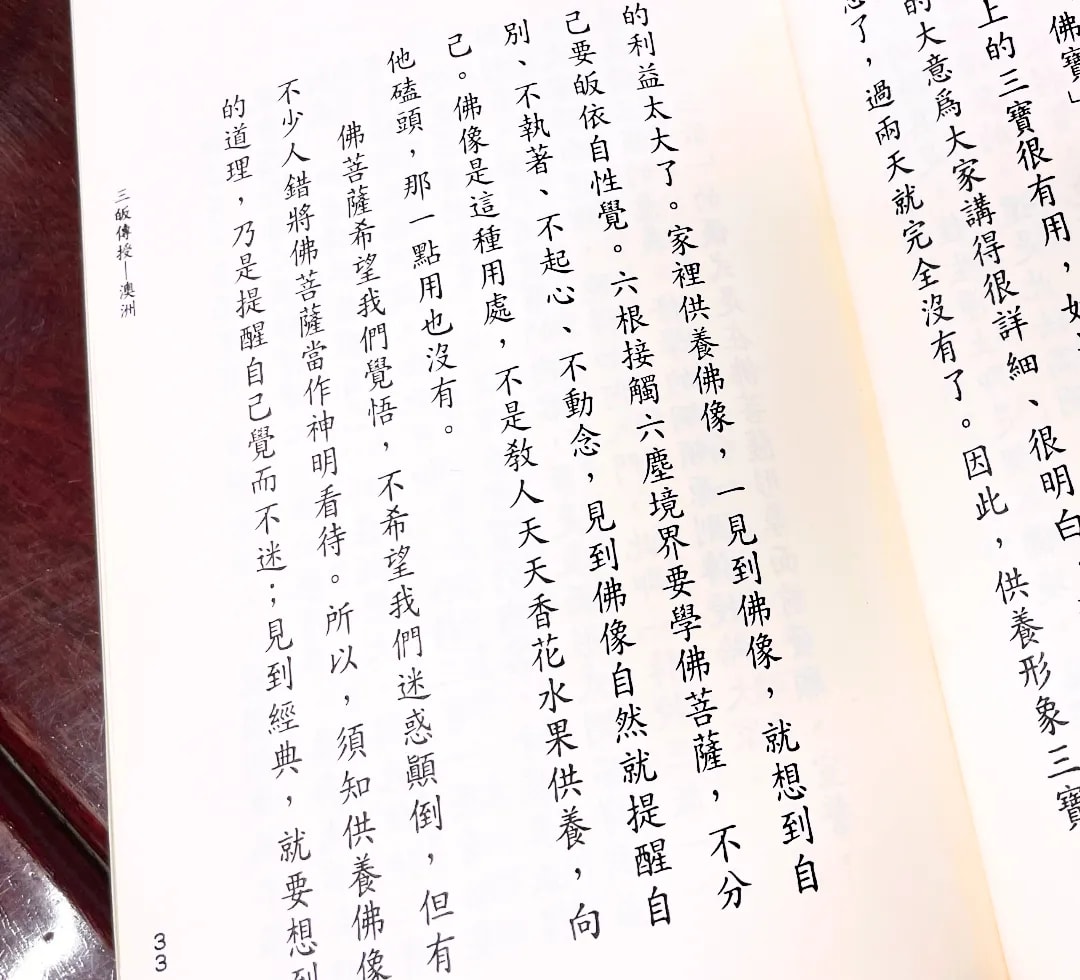 佛寶」
上的三寶很有用，如
的大意爲大家講得很詳細、很明白
了，過兩天就完全沒有了。因此，供養形象三寶
的利益太大了。家裡供養佛像，一見到佛像，就想到自
己要皈依自性覺。六根接觸六塵境界要學佛菩薩，不分
別、不執著、不起心、不動念，見到佛像自然就提醒自
己。佛像是這種用處，不是教人天天香花水果供養，向
他磕頭，那一點用也沒有。
佛菩薩希望我們覺悟，不希望我們迷惑顚倒，但有
不少人錯將佛菩薩當作神明看待。所以，須知供養佛像
的道理，乃是提醒自己覺而不迷；見到經典，就要想到
三皈傳授—澳洲
33